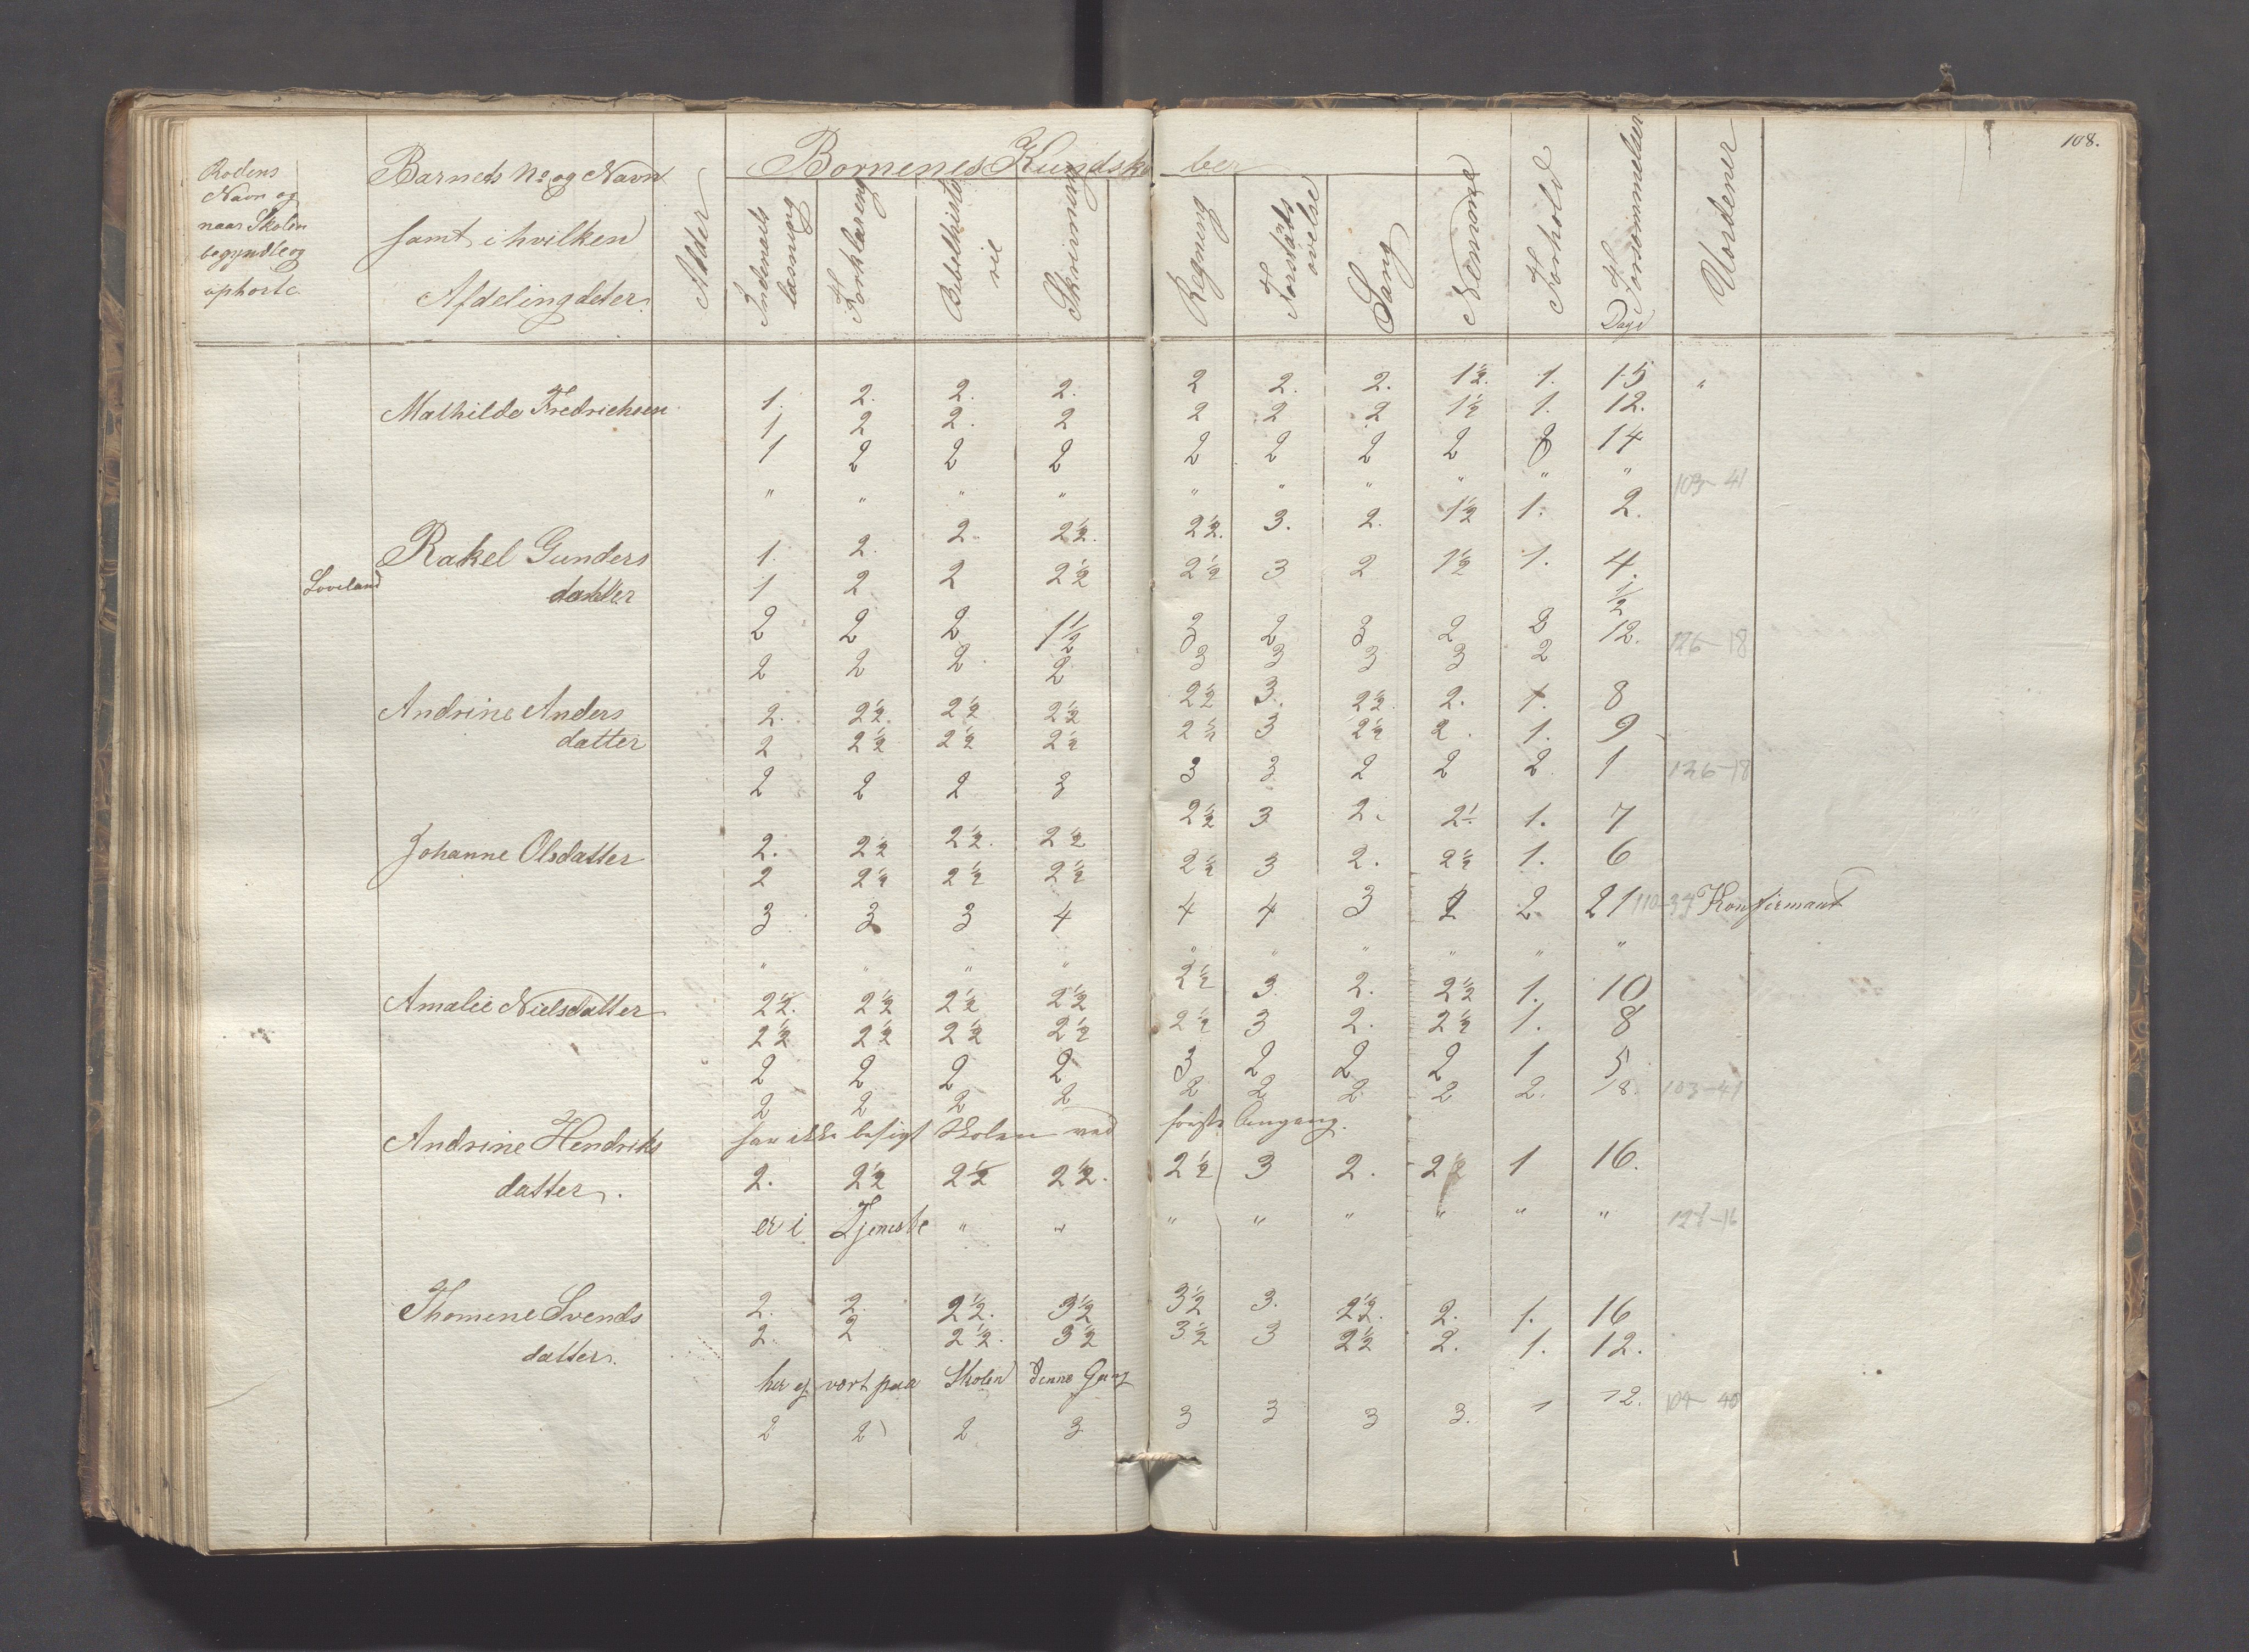 108.
Rodens
Navn og
naar Skolen
begyndte og
ophorte.
Barnets No og Navn
samt i hvilken
Afdeling det er.
Alder
Bornenes Kundska ber
Indenads
læsning
Bibelhisto
rie
Skrivning
Regning
Forstads
øvelse
Sang
Nemme
Forhold
Forsommelser
Dage
Uordener
Mathilde Fredrichsen 1. 2. 2. 2. 2 2. 2. 1½. 1. 15 "
1 2 2. 2 2 2 2 1½ 1. 12.
1 2 2 2 2 2 2 2 2 14
" " " " " " " " " " 103-41
Rakel Gunders 1. 2. 2. 2½. 2½. 3. 2. 1½ 1. 2.
Soveland datter 1 2 2 2½ 2½ 3 2 1½ 1. 4.
½
2 2 2 1½ 3 2 3 2 2 12. 126-18
2 2 2 2 3 3 3 3 2
Andrine Anders 2. 2½. 2½ 2½ 2½ 3. 2½. 2. 1. 8
datter 2 2½ 2½ 2½ 2½ 3 2½ 2. 1. 9
2 2 2 3 3 3 2 2 2 1 126-18
Johanne Olsdatter 2. 2½ 2½. 2½ 2½ 3 2. 2½ 1. 7
2 2½ 2½ 2½ 2½ 3 2. 2½ 1. 6
3 3 3 4 4 4 3 2 2 21 110-34 Konfirmant
" " " " " " " " " "
Amalie Nielsdatter 2½. 2½ 2½ 2½ 2½ 3 2. 2½ 1. 10
2½ 2½ 2½ 2½ 2½ 3 2. 2½ 1. 8
2 2 2 2 3 2 2 2 1 5
2 2 2 2 2 2 2 2 2. 18. 103-41
Andrine Hendriks har ikke besøgt Skolen ved første Omgang.
datter. 2. 2½ 2½ 2½. 2½ 3 2. 2½ 1 16.
er i Tjeneste " " " " " " " "
Thomine Svends 2. 2. 2½. 3½ 3½ 3. 2½. 2. 1. 16
datter. 2. 2 2½. 3½ 3½ 3 2½ 2. 1. 12.
har ej vært paa Skolen denne Gang
2 2 2 3 3 3 3 3. 1 12. 104-40